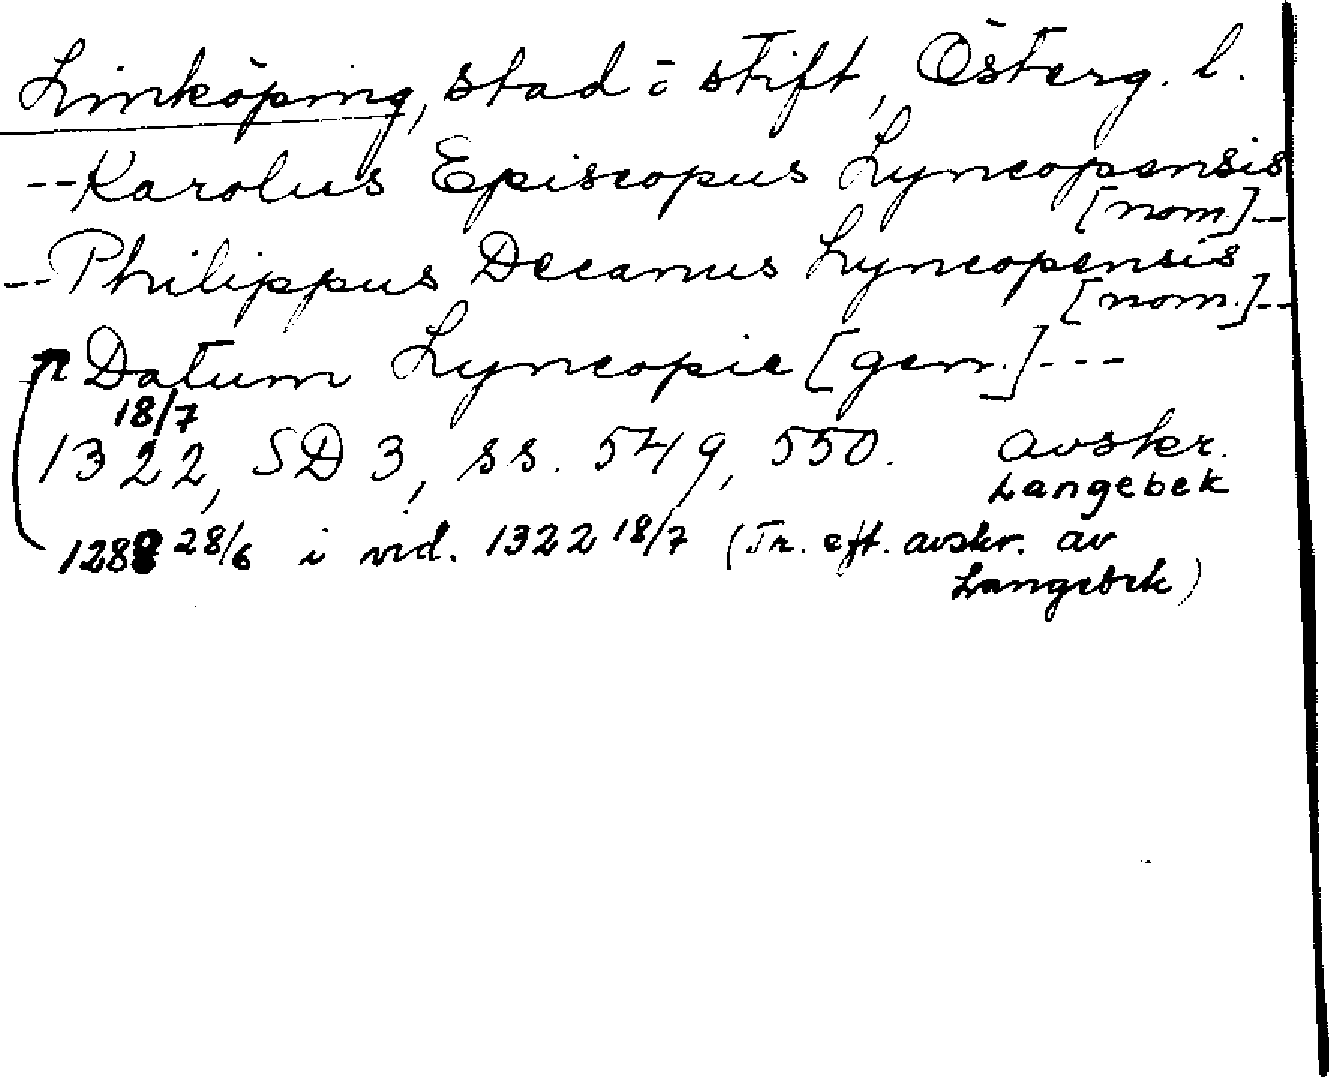 Linköping, stad o stift, Österg. l.
--Karolus Episcopus Lyncopensis
[nom.]--
--Philippus Decanus Lyncopensis
[nom.]--
Datum Lyncopie [gen.]---
18/7
1322, SD 3, ss. 549, 550. avskr.
Langebek
1288 28/6 i vid. 1322 18/7 (Tr. eft. avskr. av
Langebek)